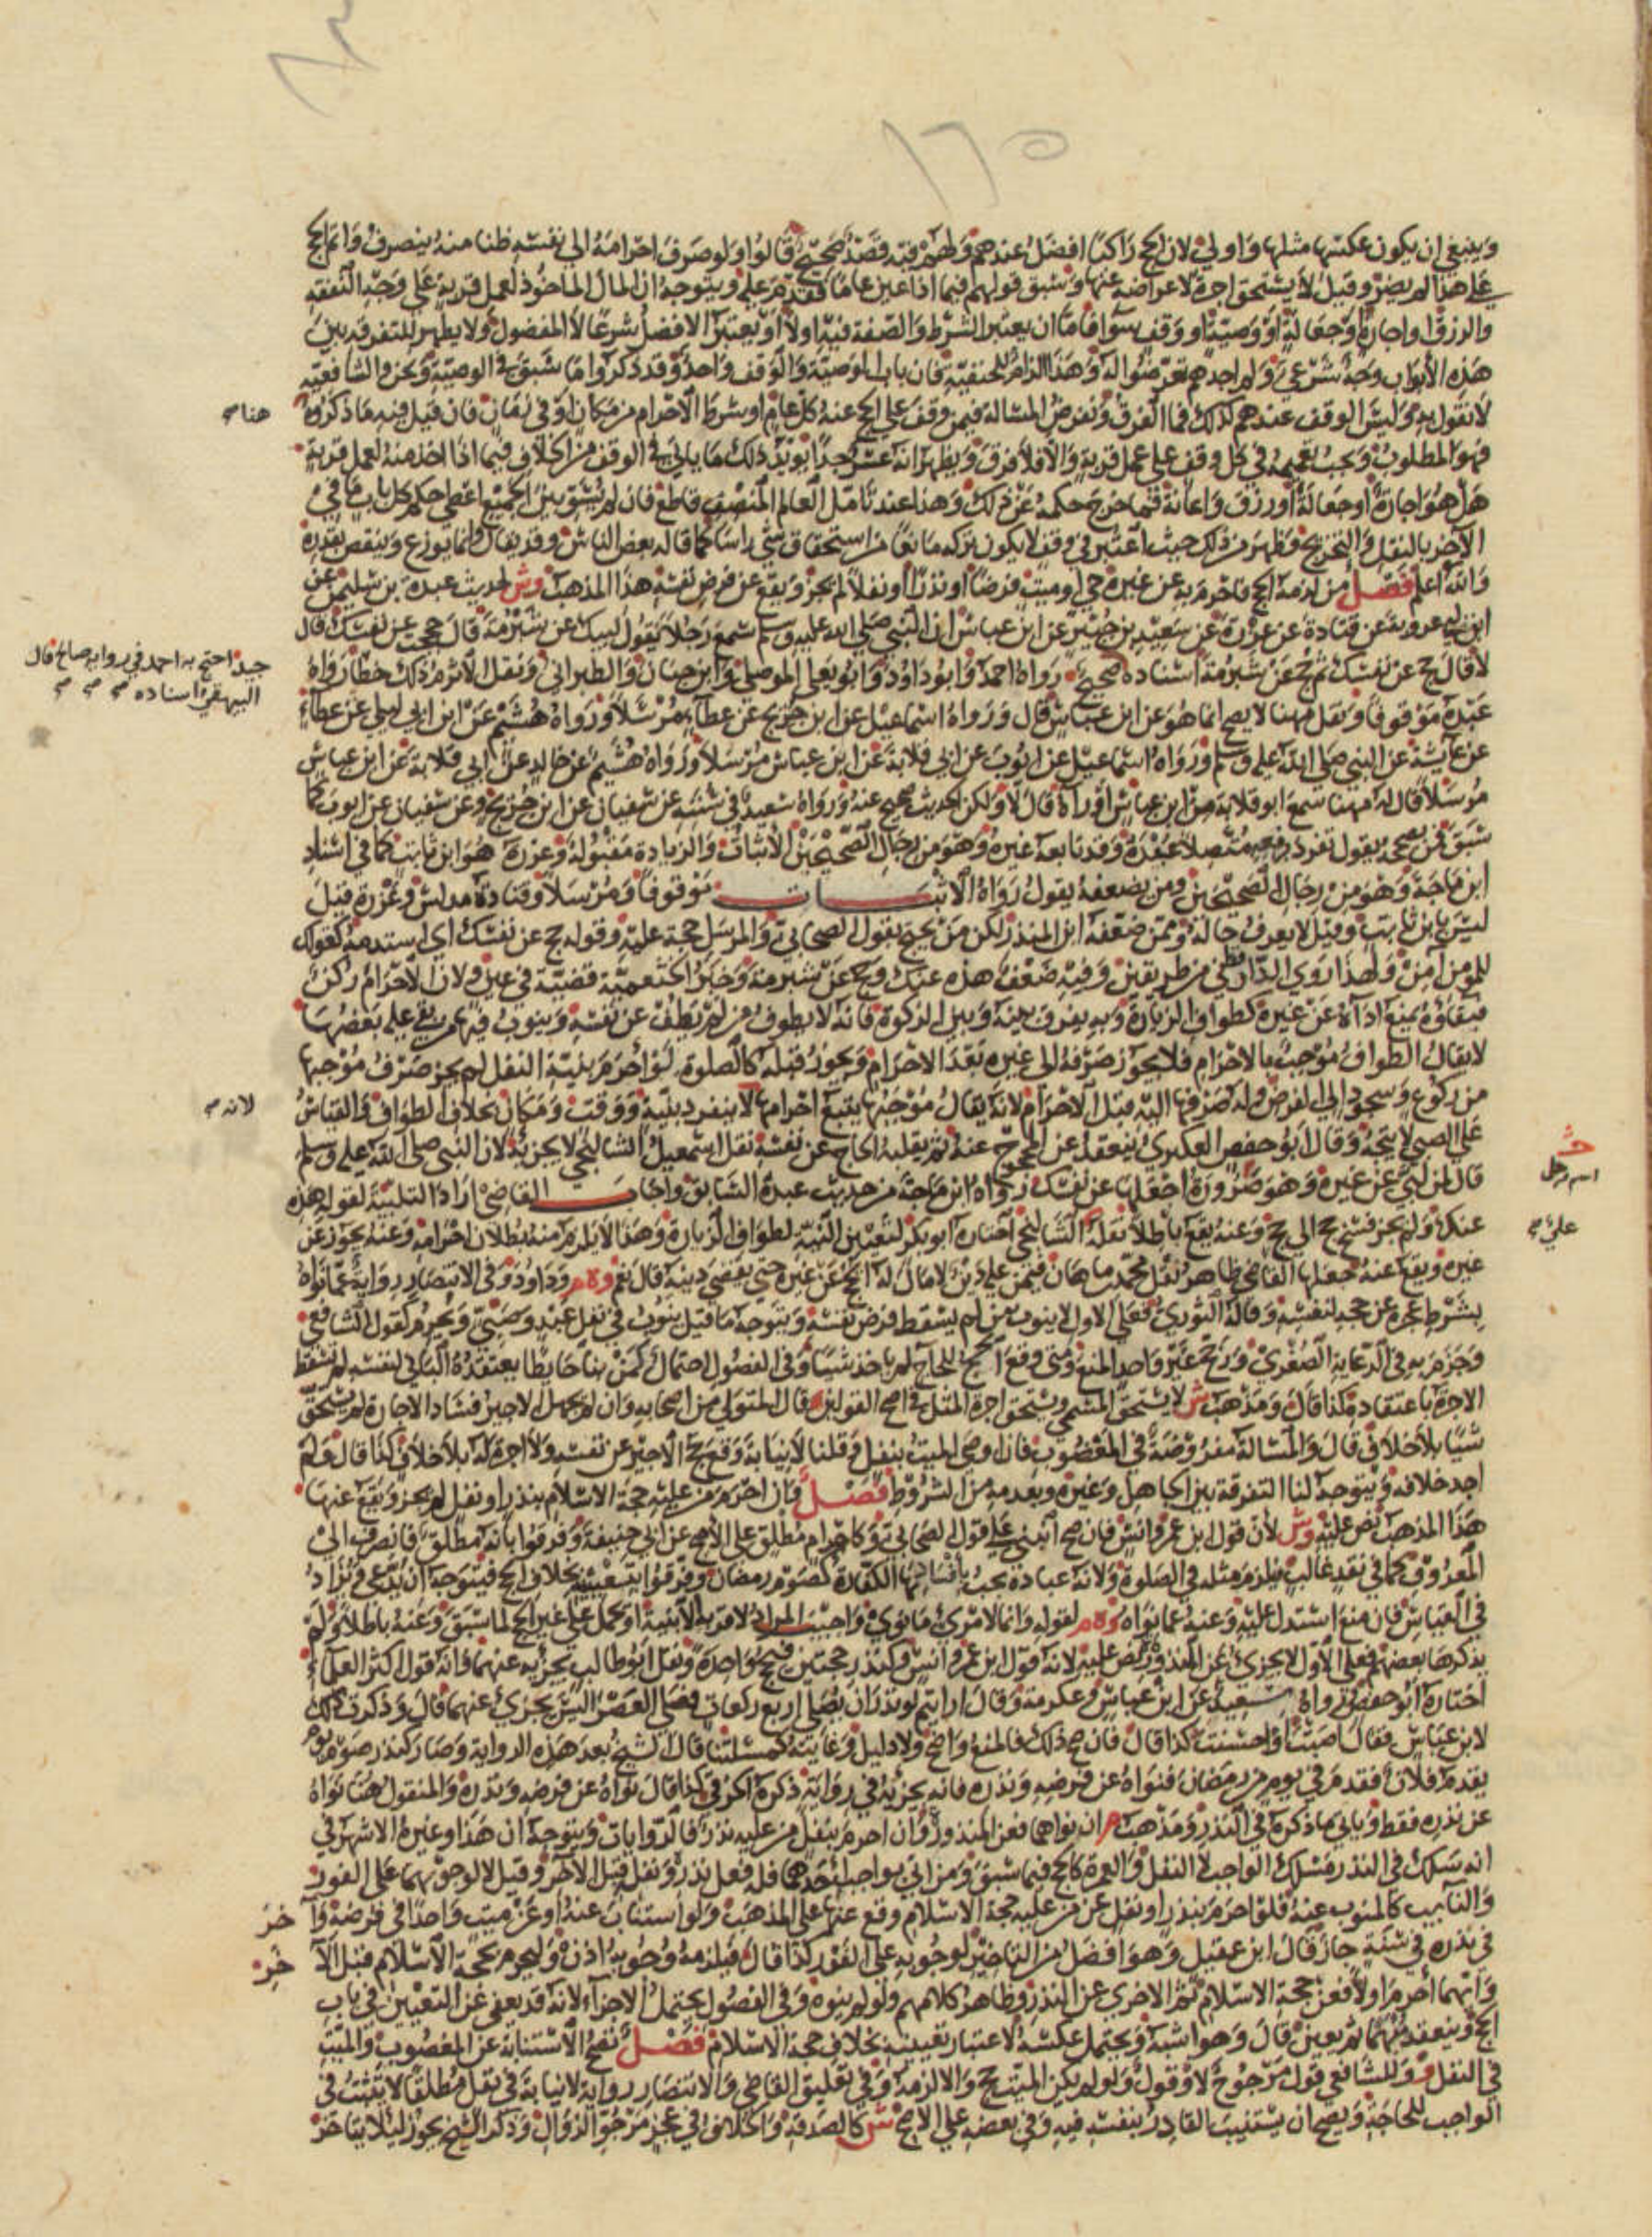 ١٢٥
وينبغي ان يكون عكسها مثلها واولي لان الحج راكبا افضل عندهم ولهم فيه قصد صحيح قالوا ولو صرف احرامه الي نفسه ظنا منه ينصرف واتم الحج
علي هذا لم يضر وقيل لا يستحق اجرة لاعراضه عنها وسبق قولهم فيما اذا عين عاما فقدم علي ويتوجه ان المال الماخوذ لعمل قربة علي وجه النفقة
والرزق او اجارة او جعالة او وصية او وقف سوا فاما ان يعتبر الشرط والصفة فيه اولا او يعتبر الافضل شرعا لا المفضول ولا يظهر للتفرقة بين
هذه الابواب وجه شرعي ولم اجدهم تعرضوا له وهذا الزام للحنفية فان باب الوصية والوقف واحد وقد ذكروا ما سبق في الوصية ونحن والشافعية
لا نقول به وليس الوقف عندهم كذلك فما الفرق ونفرض المسالة فيمن وقف علي الحج عنه كل عام او شرط الاحرام من مكان او في زمان فان قيل فيه ما ذكروه
هنا صح
فهو المطلوب ويجب تعميمه في كل وقف علي عمل قربة والا فلا فرق ويظهر انه عسر جدا يويد ذلك ما ياتي في الوقف من الخلاف فيما اذا اخذ منه لعمل قربة
هل هو اجارة او جعالة او رزق واعانة فما خرج حكمه عن ذلك وهذا عند تامل العالم المنصف قاطع فان لم نسو بين الجميع اعطي حكم كل باب ما في
الاخر بالنقل والتخريج فظهر من ذلك حيث اعتبر في وقف لا يكون تركه مانعا من استحقاق شي راسا كما قاله بعض الناس وقد يقال وانما يوزع وينقص بقدره
والله اعلم فصل من لزمه الحج فاحرم به عن غيره حي او ميت فرضا او نذرا او نفلا لم يجز ويقع عن فرض نفسه هذا المذهب وش لحديث عبدة بن سليمن عن
ابن ابي عروبة عن قتادة عن عزرة عن سعيد بن جبير عن ابن عباس ان النبي صلي الله عليه وسلم سمع رجلا يقول لبيك عن شبرمة قال حججت عن نفسك قال
لا قال حج عن نفسك ثم حج عن شبرمة اسناده صحيح رواه احمد وابو داود وابو يعلي الموصلي وابن حبان والطبراني ونقل الاثرم ذلك خطا رواه
جيد احتج به احمد في رواية صالح قال
البيهقي اسناده صحيح صح
عبدة موقوفا ونقل مهنا لا يصح انما هو عن ابن عباس قال ورواه اسماعيل عن ابن جريج عن عطاء مرسلا ورواه هشيم عن ابن ابي ليلي عن عطاء
عن عايشة عن النبي صلي الله عليه وسلم ورواه اسماعيل عن ايوب عن ابي قلابة عن ابن عباس مرسلا ورواه هشيم عن خالد عن ابي قلابة عن ابن عباس
مرسلا قال له مهنا سمع ابو قلابة من ابن عباس او راه قال لا ولكن الحديث صحيح عنه ورواه سعيد في سننه عن سفيان عن ابن جريج وعن سفيان عن ايوب كما
سبق فمن يصححه يقول تفرد برفعه متصلا عبدة وقد تابعه غيره وهو من رجال الصحيحين الاثبات والزيادة مقبولة وعزرة هو ابن ثابت كما في اسناد
ابن ماجة وهو من رجال الصحيحين ومن يضعفه يقول رواه الاثبات موقوفا ومرسلا وقتادة مدلس وعزرة قيل
ليس بابن ثابت وقيل لا يعرف حاله وممن ضعفه ابن المنذر لكن من يحتج بقول الصحابي والمرسل حجة عليه وقوله حج عن نفسك اي استدمه كقولك
للمومن آمن ولهذا روي الدارقطني من طريقين وفيه ضعف هذه عنك وحج عن شبرمة وخبر الخثعمية قضية في عين ولان الاحرام ركن
فبقاؤه يمنع اداه عن غيره كطواف الزيارة وبه يفرق بينه وبين الزكوة فانه لا يطوف من لم يطف عن نفسه وينوب فيها من بقي عليه بعضها
لا يقال الطواف موجب بالاحرام فلا يجوز صرفه الى غيره بعد الاحرام ويجوز قبله كالصلوة لو احرم بنية النفل لم يجز صرف موجبها
من ركوع وسجود الي الفرض وله صرفها اليه قبل الاحرام لانه يقال موجبها يتبع احرامها لا ينفرد بنية ووقت ومكان بخلاف الطواف والقياس
لانه صح
علي الصبي لا يتجه وقال ابو حفص العكبري ينعقد عن المحجوج عنه ثم يقلبه الحاج عن نفسه نقل اسمعيل الشالنجي لا يجزيه لان النبي صلي الله عليه وسلم
قال لمن لبي عن غيره وهو صرورة اجعلها عن نفسك رواه ابن ماجة من حديث عبدة السابق واجاب القاضي اراد التلبية لقوله هذه
اسم رجل
عنك ولم يجز فسخ حج الي حج وعنه يقع باطلا نقله الشالنجي اختاره ابو بكر لتعين النية لطواف الزيارة وهذا لا يلزم منه بطلان احرامه وعنه يجوز عن
علي صح
غيره ويقع عنه جعلها القاضي ظاهر نقل محمد بن ماهان فيمن عليه دين لا مال له الحج عن غيره حتي يقضي دينه قال نعم وه م وداود وفي الانتصار رواية عما نواه
بشرط عجزه عن حجه لنفسه وقاله الثوري فعلي الاول لا ينوب من لم يسقط فرض نفسه ويتوجه ما قيل ينوب في نفل عبد وصبي ويحرم كقول الشافعي
وجزم به في الرعاية الصغري ورجح غير واحد المنع ومتي وقع الحج للحاج لم ياخذ شيئا وفي الفصول احتمال كمن بنا حايطا يعتقده الباني لنفسه لم تسقط
الاجرة باعتقاده كذا قال ومذهب ش لا يستحق المسمي ويستحق اجرة المثل في اصح القولين قال المتولي من اصحابه وان لم يجهل الاجير فساد الاجارة لم يستحق
شيئا بلا خلاف قال والمسالة مفروضة في المعضوب فان اوصي الميت بنفل وقلنا لا نيابة وقع حج الاجير عن نفسه ولا اجرة له بلا خلاف كذا قال ولم
اجد خلافه ويتوجه لنا التفرقة بين الجاهل وغيره وبعدمه من الشروط فصل فان احرم من عليه حجة الاسلام بنذر او نفل لم يجز ويقع عنها
هذا المذهب نص عليه وش لان قول ابن عمر وانس فان صح انبني علي قول الصحابي وكاحرام مطلق علي الاصح عن ابي حنيفة وفرقوا بانه مطلق فانصرف الي
المعروف كما في نقد غالب فيلزم مثله في الصلوة ولانه عبادة يجب بافسادها الكفارة كصوم رمضان وفرقوا بتعيينه بخلاف الحج فيتوجه ان يدعي ويزاد
في القياس فان منع استدل عليه وعنه عما نواه وه م لقوله وانما لامرئ ما نوي واجيب المراد لا قربة الا بنية او يحمل علي غير الحج لما سبق وعنه باطلا ولم
يذكرها بعضهم فعلي الاول لا يجزي عن المنذورة نص عليه لانه قول ابن عمر وانس وكنذر حجتين فيحج واحدة ونقل ابو طالب يجزيه عنهما وانه قول اكثر العلماء
اختاره ابو حفص ورواه سعيد عن ابن عباس وعكرمة وقال ارايتم لو نذر ان يصلي اربع ركعات فصلي العصر اليس يجزئ عنهما قال وذكرت ذلك
لابن عباس فقال اصبت او احسنت كذا قال فان صح ذلك فالمنع واضح ولا دليل وغايته كمسئلتنا قال الشيخ بعد هذه الرواية وصار كنذر صوم يوم
يقدم فلان فقدم في يوم من رمضان فنواه عن فرضه ونذره فانه يجزيه في رواية ذكره الخرقي كذا قال نواه عن فرضه ونذره والمنقول هنا نواه
عن نذره فقط وياتي ما ذكره في النذر ومذهب م ان نواهما فعن المنذور وان احرم بنفل من عليه نذر فالروايات ويتوجه ان هذا وغيره الاشهر في
انه سلك في النذر مسلك الواجب لا النفل والعمرة كالحج فيما سبق ومن اتي بواجب احدهما فله فعل نذر ونفل قبل الاخر وقيل لا لوجوبهما علي الفور
والنايب كالمنوب عنه فلو احرم بنذر او نفل عن من عليه حجة الاسلام وقع عنها علي المذهب ولو استناب عنه او عن ميت واحدا في فرضه وآخر
في نذره في سنة جاز قال ابن عقيل وهو افضل من التاخير لوجوبه علي الفور كذا قال فيلزمه وجوبه اذن وليحرم بحجة الاسلام قبل الآخر
وايهما احرم اولا فعن حجة الاسلام ثم الاخري عن النذر وظاهر كلامهم ولو لم ينوه وفي الفصول يحتمل الاجزاء لانه قد يعفي عن التعيين في باب
الحج وينعقد مبهما ثم يعين قال وهو اشبه ويحتمل عكسه لاعتبار تعيينه بخلاف حجة الاسلام فصل تصح الاستنابة عن المعضوب والميت
في النفل وللشافعي قول مرجوح لا وقول ولو لم يكن الميت حج والا لزمه وفي تعليق القاضي والانتصار رواية لا نيابة في نفل مطلقا لا يثبت في
الواجب للحاجة ويصح ان يستنيب القادر بنفسه فيه وفي بعضه علي الاصح ش كالصدقة والخلاف في عجز مرجو الزوال وذكر الشيخ يجوز لئلا يتاخر